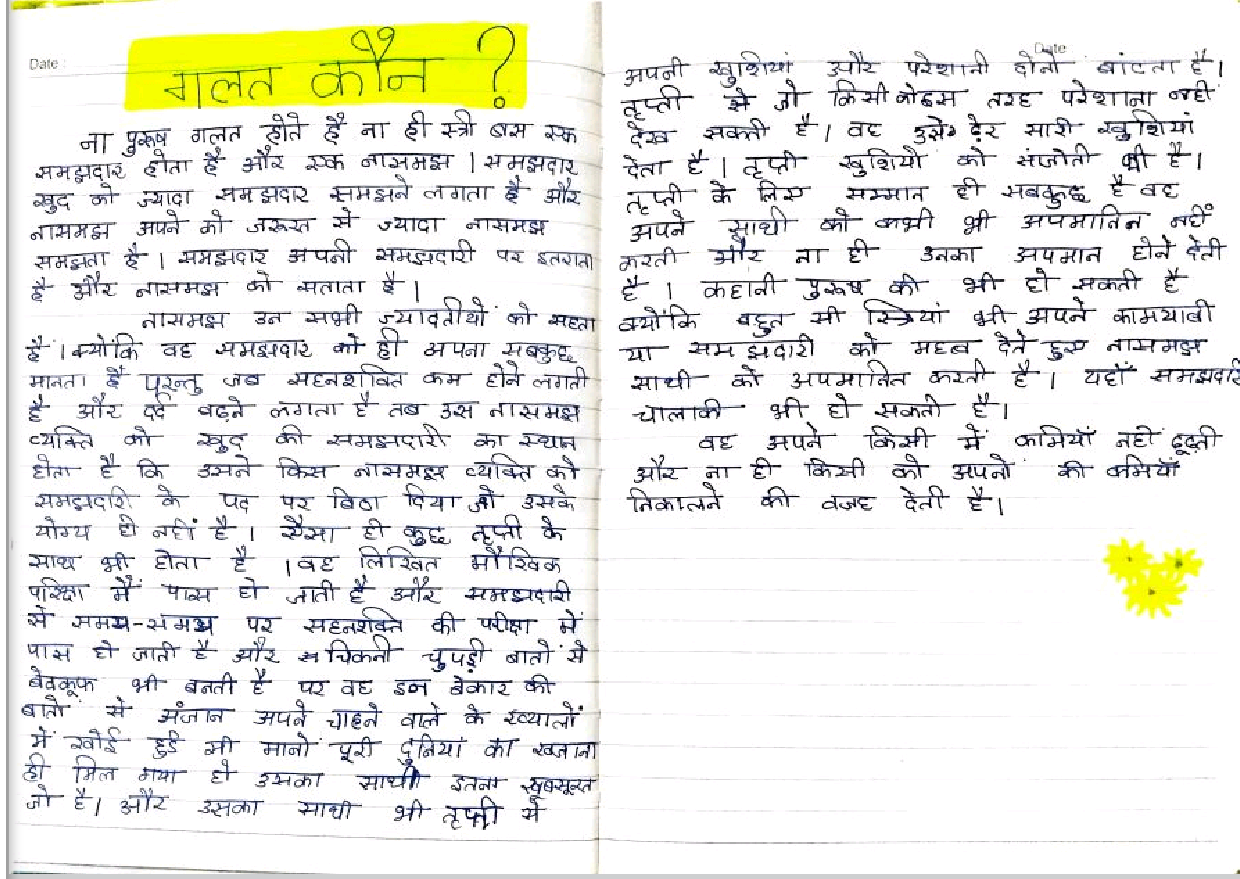 Date :
गलत कौन ?
ना पुरूष गलत होते है ना ही स्त्री बस एक
समझदार होता है और एक नासमझ । समझदार
खुद को ज्यादा समझदार समझने लगता है और
नासमझ अपने को जरूरत से ज्यादा नासमझ
समझता है । समझदार अपनी समझदारी पर इतराता
है और नासमझ को सताता है ।
नासमझ उन सभी ज्यादतीयों को सहता
है । क्योंकि वह समझदार को ही अपना सबकुछ
मानता है परन्तु जब सहनशक्ति कम होने लगती
है और दर्द बढ़ने लगता है तब उस नासमझ
व्यक्ति को खुद की समझदारी का स्थान
होता है कि उसने किस नासमझ व्यक्ति को
समझदारी के पद पर बिठा दिया जो उसके
योग्य ही नहीं है । ऐसा ही कुछ तृप्ती के
साथ भी होता है । वह लिखित मौखिक
परिक्षा में पास हो जाती है और समझदारी
से समय-समय पर सहनशक्ति की परीक्षा में
पास हो जाती है और चिकनी चुपड़ी बातों से
बेवकूफ भी बनती है पर वह इन बेकार की
बातों से अंजान अपने चाहने वाले के ख्यालों
में खोई हुई सी मानों पूरी दुनियां का खजाना
ही मिल गया हो उसका साथी इतना खूबसूरत
जो है । और उसका साथी भी तृप्ती से
Date
अपनी खुशियां और परेशानी दोनों बांटता है ।
तृप्ती से जो किसी को इस तरह परेशाना नहीं
देख सकती है । वह उसे ढ़ेर सारी खुशियां
देता है । तृप्ती खुशियों को संजोती भी है ।
तृप्ती के लिए सम्मान ही सबकुछ है वह
अपने साथी को कभी भी अपमानित नहीं
करती और ना ही उनका अपमान होने देती
है । कहानी पुरूष की भी हो सकती है
क्योंकि बहुत सी स्त्रियां भी अपने कामयाबी
या समझदारी को महत्व देते हुए नासमझ
साथी को अपमानित करती है । यहाँ समझदारी
चालाकी भी हो सकती है ।
वह अपने किसी में कमियाँ नहीं ढूढ़ती
और ना ही किसी को अपनो की कमियाँ
निकालने की वजह देती है ।